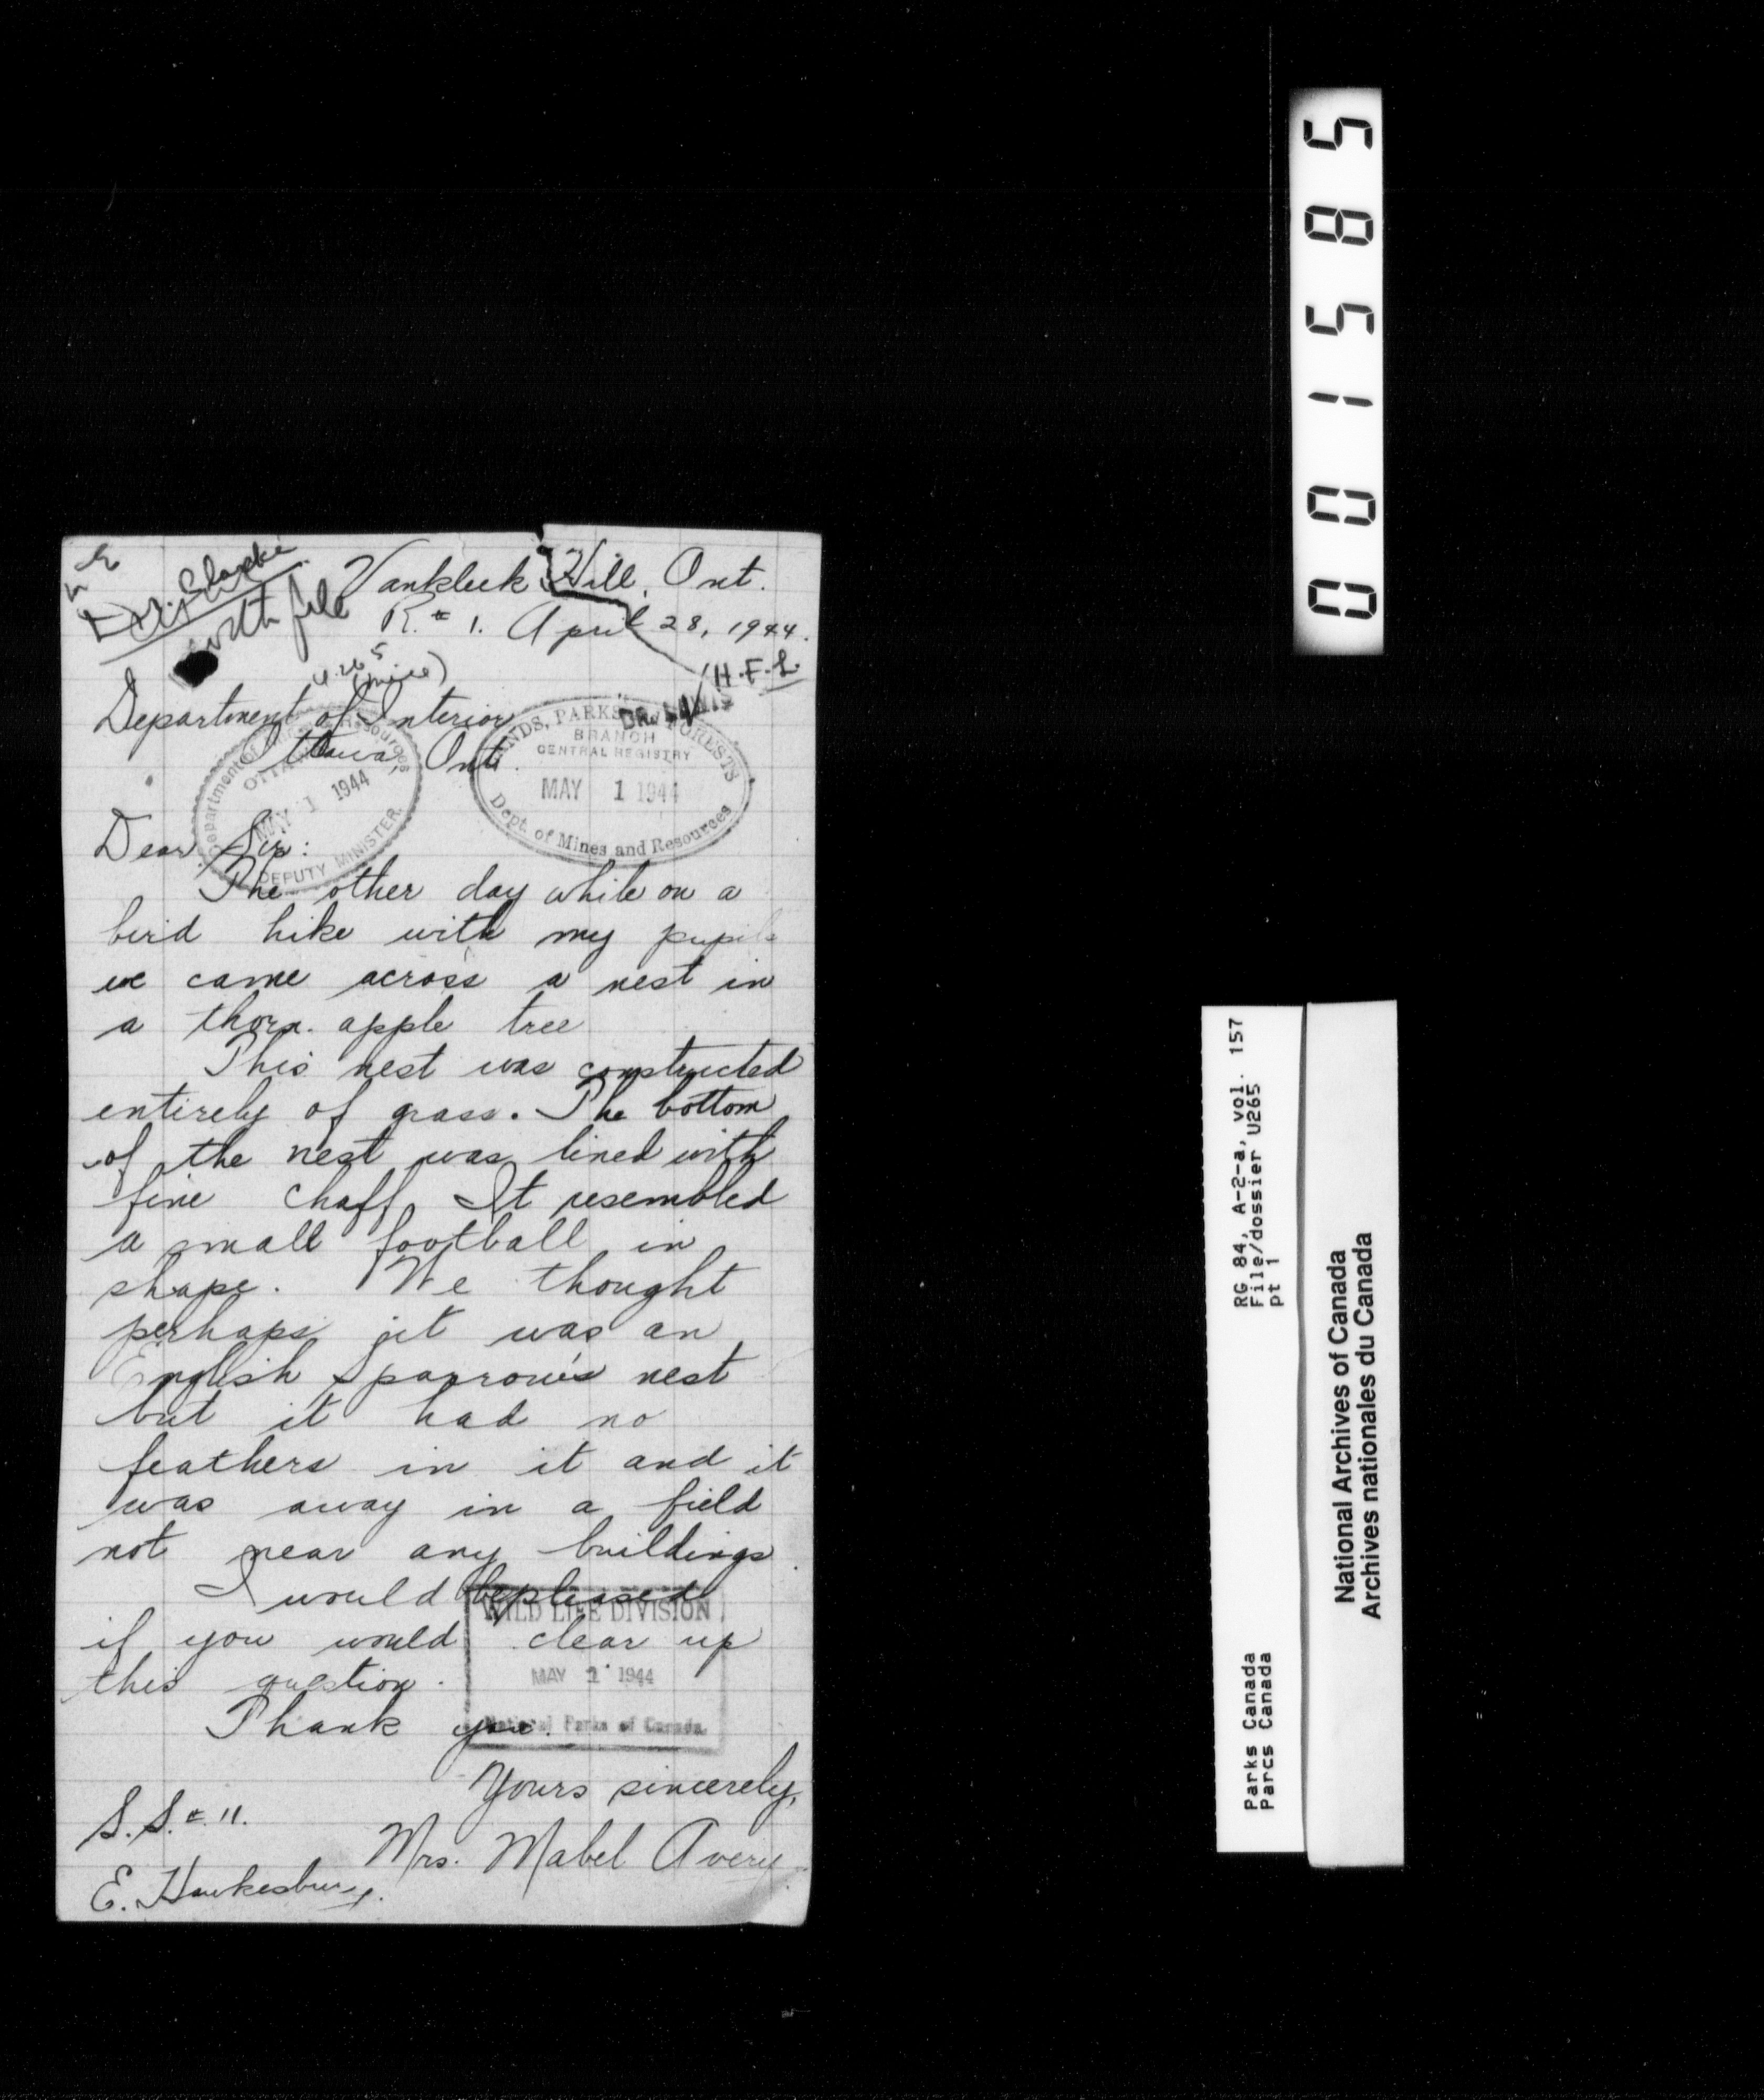 Dr. Clarke
with file
Vankleek Hill, Ont.
R. # 1. April 28, 1944.
U.265
(mice)
H.F.L.
DR. LEWIS
Department of Interior
Ottawa, Ont.
Department of Mines and Resources
OTTAWA
MAY 1 1944
DEPUTY MINISTER.
LANDS, PARKS AND FORESTS
BRANCH
CENTRAL REGISTRY
MAY 1 1944
Dept. of Mines and Resources
Dear Sir:
The other day while on a
bird hike with my pupils
we came across a nest in
a thorn apple tree
This nest was constructed
entirely of grass. The bottom
of the nest was lined with
fine chaff. It resembled
a small football in
shape. We thought
perhaps it was an
English Sparrow's nest
but it had no
feathers in it and it
was away in a field
not near any buildings.
I would be pleased
if you would clear up
this question.
Thank you.
WILD LIFE DIVISION
MAY 1 1944
National Parks of Canada
Yours sincerely,
S.S. # 11.
Mrs. Mabel Avery.
E. Hawkesbury.
001585
RG 84, A-2-a, vol. 157
File/dossier U265
pt 1
Parks Canada
Parcs Canada
National Archives of Canada
Archives nationales du Canada